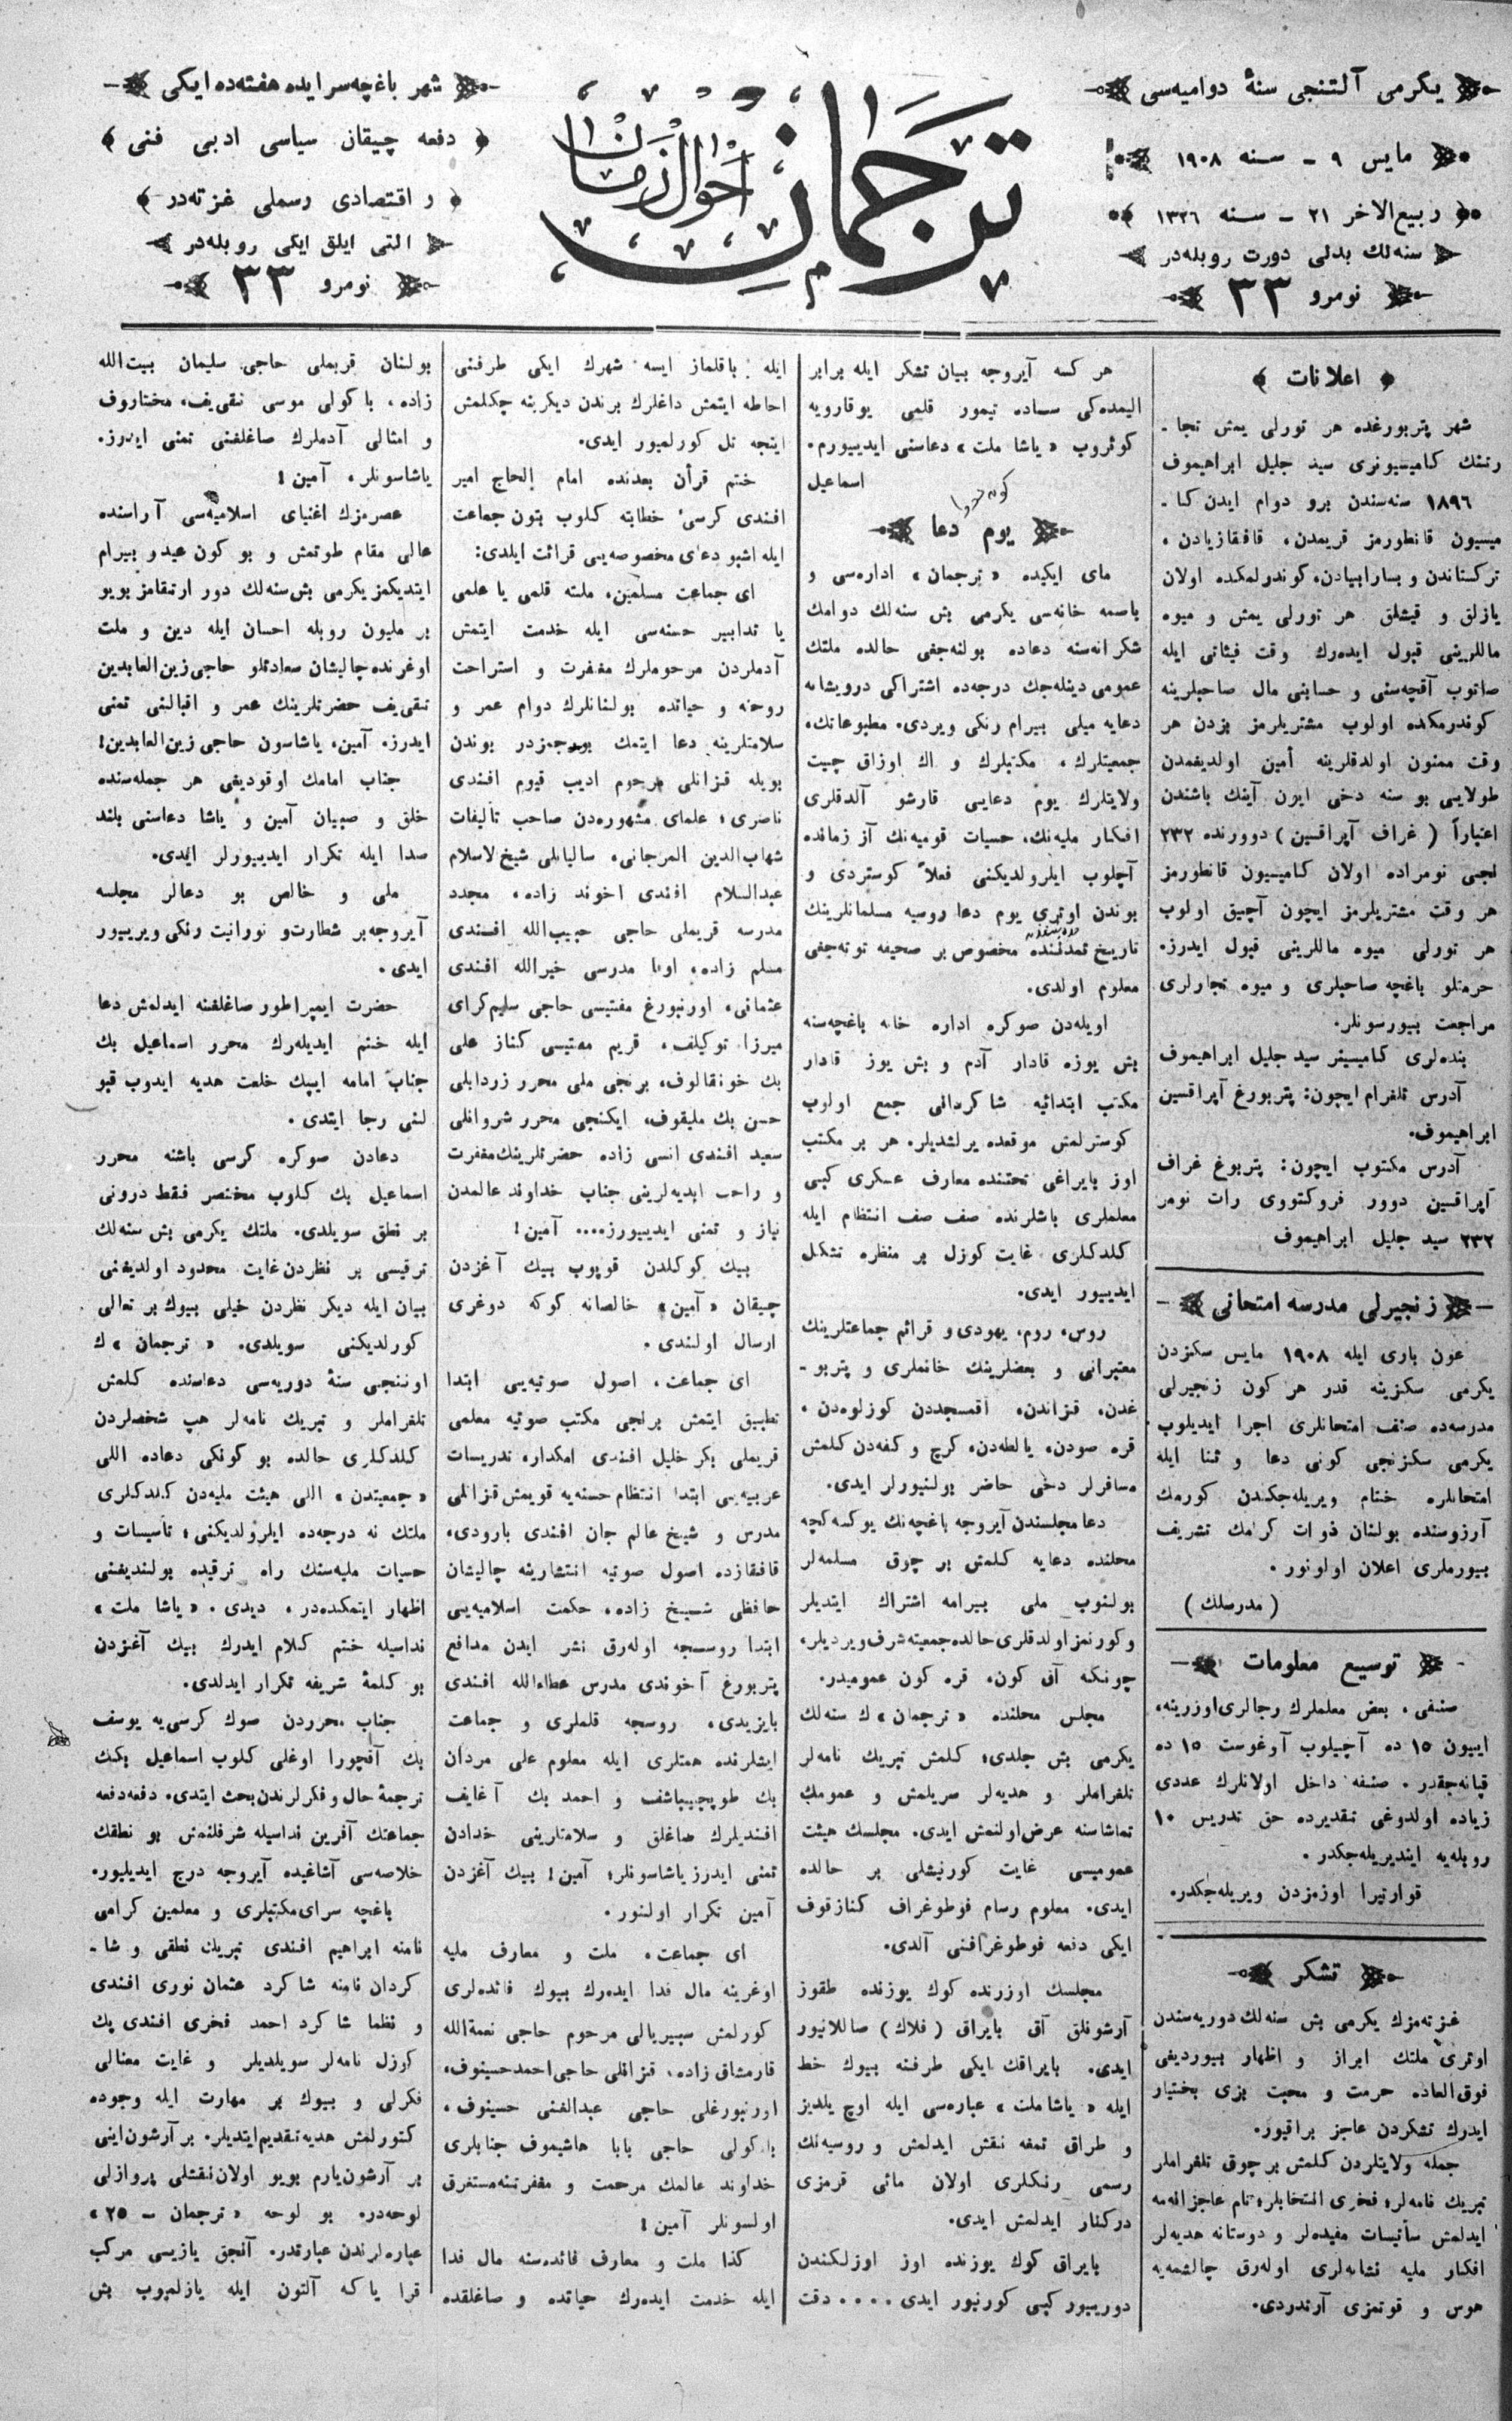 يكرمى آلتنجى سنهٔ دواميه‌سى
مايس ٩ - سنه ١٩٠٨
ربيع‌الاخر ٢١ - سنه ١٣٢٦
سنه‌لك بدلى دورت روبله‌در
نومرو ٣٣
ترجمان
احوال زمان
شهر باغچه‌سرايده هفته‌ده ايكى
دفعه چيقان سياسى ادبى فنى
و اقتصادى رسملى غزته‌در
التى ايلق ايكى روبله‌در
نومرو ٣٣
اعلانات
شهر پتربورغده هر تورلى يمش تجا -
رتنك كاميسيونرى سيد جليل ابراهيموف
١٨٩٦ سنه‌سندن برو دوام ايدن كا -
ميسيون قانطورمز قريمدن، قافقازيادن،
تركستاندن و بسارابيادن، كوندرلمكده اولان
يازلق و قيشلق هر تورلى يمش و ميوه
ماللرينى قبول ايده‌رك وقت فيئاتى ايله
صاتوب آقچه‌سنى و حسابنى مال صاحبلرينه
كوندرمكده اولوب مشتريلرمز بزدن هر
وقت ممنون اولدقلرينه أمين اولديغمدن
طولايى بو سنه دخى ايون آينك باشندن
اعتباراً ( غراف آپراقسين ) دوورنده ٢٣٢
لجى نومراده اولان كاميسيون قانطورمز
هر وقت مشتريلرمز ايچون آچيق اولوب
هر تورلى ميوه ماللرينى قبول ايدرز.
حرمتلو باغچه صاحبلرى و ميوه تجارلرى
مراجعت بيورسونلر.
بنده‌لرى كاميسيتر سيد جليل ابراهيموف
آدرس تلغرام ايچون: پتربورغ آپراقسين
ابراهيموف.
آدرس مكتوب ايچون: پتربوغ غراف
آپراقسين دوور فروكتووى رات نومر
٢٣٢ سيد جليل ابراهيموف
زنجيرلى مدرسه امتحانى
عون بارى ايله ١٩٠٨ مايس سكزدن
يكرمى سكزينه قدر هر كون زنجيرلى
مدرسه‌ده صنف امتحانلرى اجرا ايديلوب
يكرمى سكزنجى كونى دعا و ثنا ايله
امتحانلره ختام ويريله‌جكندن كورمك
آرزوسنده بولنان ذوات كرامك تشريف
بيورملرى اعلان اولونور.
( مدرسلك )
توسيع معلومات
صنفى، بعض معلملرك رجالرى اوزرينه،
اييون ١٥ ده آچيلوب آوغوست ١٥ ده
قپانه‌جقدر. صنفه داخل اولانلرك عددى
زياده اولدوغى تقديرده حق تدريس ١٠
روبله‌يه اينديريله‌جكدر.
قوارتيرا اوزمزدن ويريله‌جكدر.
تشكر
غزته‌مزك يكرمى بش سنه‌لك دوريه‌سندن
اوترى ملتك ابراز و اظهار بيورديغى
فوق‌العاده حرمت و محبت بزى بختيار
ايدرك تشكردن عاجز براقيور.
جمله ولايتلردن كلمش بر چوق تلغراملر
تبريك نامه‌لر؛ فخرى انتخابلر؛ نام عاجزانه‌مه
ايدلمش سأتيسات مفيده‌لر و دوستانه هديه‌لر
افكار مليه نشانه‌لرى اوله‌رق چالشمه‌يه
هوس و قوتمزى آرتدردى.
هر كسه آيروجه بيان تشكر ايله برابر
اليمده‌كى ساده تيمور قلمى يوقارويه
كوتروب « ياشا ملت » دعاسنى ايدييورم.
اسماعيل
يوم دعا
ماى ايكيده « ترجمان » اداره‌سى و
باصمه خانه‌سى يكرمى بش سنه‌لك دوامك
شكرانه‌سنه دعاده بولنه‌جغى حالده ملتك
عمومى دينله‌جك درجه‌ده اشتراكى درويشانه
دعايه ميلى بيرام رنكى ويردى. مطبوعاتك،
جمعيتلرك، مكتبلرك و اك اوزاق چيت
ولايتلرك يوم دعايى قارشو آلدقلرى
افكار مليه‌نك، حسيات قوميه‌نك آز زمانده
آچلوب ايلرولديكنى فعلاً كوستردى و
بوندن اوترى يوم دعا روسيه مسلمانلرينك
تاريخ تمدننده مخصوص بر صحيفه توته‌جغى
معلوم اولدى.
اويله‌دن صوكره اداره خانه باغچه‌سنه
بش يوزه قادار آدم و بش يوز قادار
مكتب ابتدائيه شاكردانى جمع اولوب
كوسترلمش موقعده يرلشديلر. هر بر مكتب
اوز بايراغى تحتنده معارف عسكرى كبى
معلملرى باشلرنده صف صف انتظام ايله
كلدكلرى غايت كوزل بر منظره تشكل
ايدييور ايدى.
روس، روم، يهودى و قرائم جماعتلرينك
معتبرانى و بعضلرينك خانملرى و پتربو -
غدن، قزاندن، آقمسجددن كوزلوه‌دن،
قره صودن، يالطه‌دن، كرچ و كفه‌دن كلمش
مسافرلر دخى حاضر بولنيورلر ايدى.
دعا مجلسندن آيروجه باغچه‌نك يوكسه‌كچه
محلنده دعايه كلمش بر چوق مسلمه‌لر
بولنوب ملى بيرامه اشتراك ايتديلر
و كورنمز اولدقلرى حالده جمعيته شرف ويرديلر،
چونكه آق كون، قره كون عموميدر.
مجلس محلنده « ترجمان »ك سنه‌لك
يكرمى بش جلدى؛ كلمش تبريك نامه‌لر
تلغراملر و هديه‌لر سريلمش و عمومك
تماشاسنه عرض اولنمش ايدى. مجلسك هيئت
عموميسى غايت كورنيشلى بر حالده
ايدى. معلوم رسام فوطوغراف كنازقوف
ايكى دفعه فوطوغرافنى آلدى.
مجلسك اوزرنده كوك يوزنده طقوز
آرشونلق آق بايراق ( فلاك ) صاللانيور
ايدى. بايراقك ايكى طرفنه بيوك خط
ايله « ياشا ملت » عباره‌سى ايله اوچ يلديز
و طراق تمغه نقش ايدلمش و روسيه‌نك
رسمى رنكلرى اولان مائى قرمزى
دركنار ايدلمش ايدى.
بايراق كوك يوزنده اوز اوزلكندن
دوريبور كبى كورنيور ايدى .... دقت
ايله باقلماز ايسه شهرك ايكى طرفنى
احاطه ايتمش داغلرك برندن ديكرينه چكلمش
اينجه تل كورلميور ايدى.
ختم قرأن بعدنده امام الحاج امير
افندى كرسئ خطابته كلوب بتون جماعت
ايله اشبو دعاى مخصوصه‌يى قرائت ايلدى:
اى جماعت مسلمين، ملته قلمى يا علمى
يا تدابير حسنه‌سى ايله خدمت ايتمش
آدملردن مرحوملرك مغفرت و استراحت
روحنه و حياتده بولنانلرك دوام عمر و
سلامتلرينه دعا ايتمك بورجمزدر بوندن
بويله قزانلى مرحوم اديب قيوم افندى
ناصرى؛ علماى مشهوره‌دن صاحب تأليفات
شهاب‌الدين المرجانى، ساليانلى شيخ‌لاسلام
عبدالسلام افندى اخوند زاده، مجدد
مدرسه قريملى حاجى حبيب‌الله افندى
مسلم زاده، اوفا مدرسى خيرالله افندى
عثمانى، اورنبورغ مفتيسى حاجى سليم‌كراى
ميرزا توكيلف، قريم مفتيسى كناز على
بك خونقالوف، برنجى ملى محرر زردابلى
حسن بك مليقوف، ايكنجى محرر شروانلى
سعيد افندى انسى زاده حضرتلرينك مغفرت
و راحت ابديه‌لرينى جناب خداوند عالمدن
نياز و تمنى ايدييورز.... آمين!
بيك كوكلدن قوپوب بيك آغزدن
چيقان « آمين » خالصانه كوكه دوغرى
ارسال اولندى.
اى جماعت، اصول صوتيه‌يى ابتدا
تطبيق ايتمش برلجى مكتب صوتيه معلمى
قريملى بكر خليل افندى امكدار، تدريسات
عربيه‌يى ابتدا انتظام حسنه‌يه قويمش قزانلى
مدرس و شيخ عالم جان افندى بارودى،
قافقازده اصول صوتيه انتشارينه چاليشان
حافظى شيخ زاده، حكمت اسلاميه‌يى
ابتدا روسچه اوله‌رق نشر ايدن مدافع
پتربورغ آخوندى مدرس عطاءالله افندى
بايزيدى، روسجه قلملرى و جماعت
ايشلرنده همتلرى ايله معلوم على مردان
بك طوپچيباشف و احمد بك آغايف
افنديلرك صاغلق و سلامتارينى خدادن
تمنى ايدرز ياشاسونلر؛ آمين! بيك آغزدن
آمين تكرار اولنور.
اى جماعت، ملت و معارف مليه
اوغرينه مال فدا ايده‌رك بيوك فائده‌لرى
كورلمش سيبريالى مرحوم حاجى نعمةالله
قارمشاق زاده، قزانلى حاجى احمد حسينوف،
اورنبورغلى حاجى عبدالغنى حسينوف،
باكولى حاجى بابا هاشيموف جنابلرى
خداوند عالمك مرحمت و مغفرتنه مستغرق
اولسونلر آمين!
كذا ملت و معارف فائده‌سنه مال فدا
ايله خدمت ايده‌رك حياتده و صاغلقده
بولنان قريملى حاجى سليمان بيت‌الله
زاده، باكولى موسى نقى‌يف، مختاروف
و امثالى آدملرك صاغلغنى تمنى ايدرز.
ياشاسونلر، آمين!
عصرمزك اغنياى اسلاميه‌سى آراسنده
عالى مقام طوتمش و بو كون عيد و بيرام
ايتديكمز يكرمى بش سنه‌لك دور ارتقامز بويو
بر مليون روبله احسان ايله دين و ملت
اوغرنده چاليشان سعادتلو حاجى زين‌العابدين
تقى‌يف حضرتلرينك عمر و اقبالنى تمنى
ايدرز. آمين، ياشاسون حاجى زين‌العابدين!
جناب امامك اوقوديغى هر جمله‌سنده
خلق و صبيان آمين و ياشا دعاسنى بلند
صدا ايله تكرار ايدييورلر ايدى.
ملى و خالص بو دعالر مجلسه
آيروجه بر شطارت و نورانيت رنكى ويرييور
ايدى.
حضرت ايمپراطور صاغلغنه ايدلمش دعا
ايله ختم ايديله‌رك محرر اسماعيل بك
جناب امامه ايپك خلعت هديه ايدوب قبو
لنى رجا ايتدى.
دعادن صوكره كرسى باشنه محرر
اسماعيل بك كلوب مختصر فقط درونى
بر نطق سويلدى. ملتك يكرمى بش سنه‌لك
ترقيسى بر نظردن غايت محدود اولديغنى
بيان ايله ديكر نظردن خيلى بيوك بر تعالى
كورلديكنى سويلدى. « ترجمان »ك
اوننجى سنهٔ دوريه‌سى دعاسنده كلمش
تلغراملر و تبريك نامه‌لر هپ شخصلردن
كلدكلرى حالده بو كونكى دعاده اللى
« جمعيتدن » اللى هيئت مليه‌دن كلدكلرى
ملتك نه درجه‌ده ايلرولديكنى؛ تأسيسات و
حسيات مليه‌سنك راه ترقيده بولنديغنى
اظهار ايتمكده‌در، ديدى. « ياشا ملت »
نداسيله ختم كلام ايدرك بيك آغزدن
بو كلمهٔ شريفه تكرار ايدلدى.
جناب محرردن صوك كرسى‌يه يوسف
بك آقچورا اوغلى كلوب اسماعيل بكك
ترجمهٔ حال و فكرلرندن بحث ايتدى. دفعه دفعه
جماعتك آفرين نداسيله شرفلنمش بو نطقك
خلاصه‌سى آشاغيده آيروجه درج ايديليور.
باغچه سراى مكتبلرى و معلمين كرامى
نامنه ابراهيم افندى تبريك نطقى و شا -
كردان نامنه شاكرد عثمان نورى افندى
و نظما شاكرد احمد فخرى افندى پك
كوزل نامه‌لر سويلديلر و غايت معنالى
فكرلى و بيوك بر مهارت ايله وجوده
كتورلمش هديه تقديم ايتديلر. بر آرشون اينى
بر آرشون يارم بويو اولان نقشلى پروازلى
لوحه‌در. بو لوحه « ترجمان - ٢٥ »
عباره‌لرندن عبارتدر. آنجق يازيسى مركب
قرا ياكه آلتون ايله يازلميوب بش